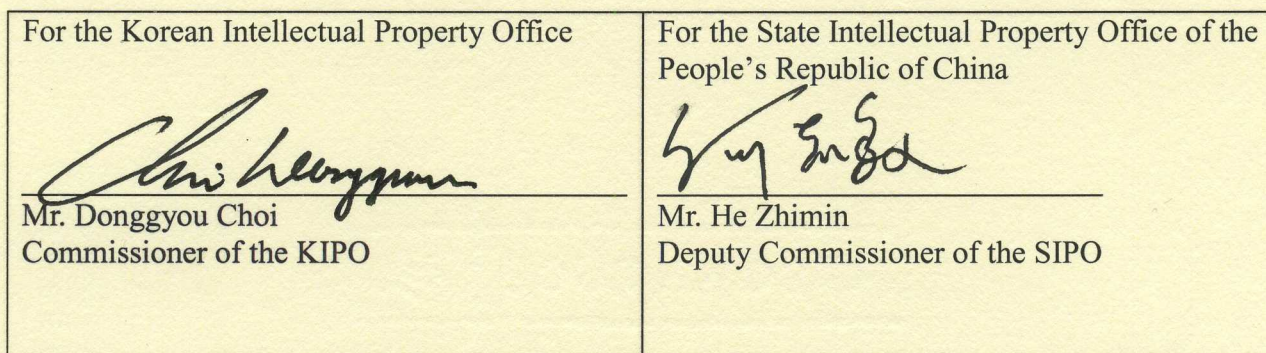 For the Korean Intellectual Property Office
Mr. Donggyou Choi
Commissioner of the KIPO
For the State Intellectual Property Office of the
People's Republic of China
Mr. He Zhimin
Deputy Commissioner of the SIPO